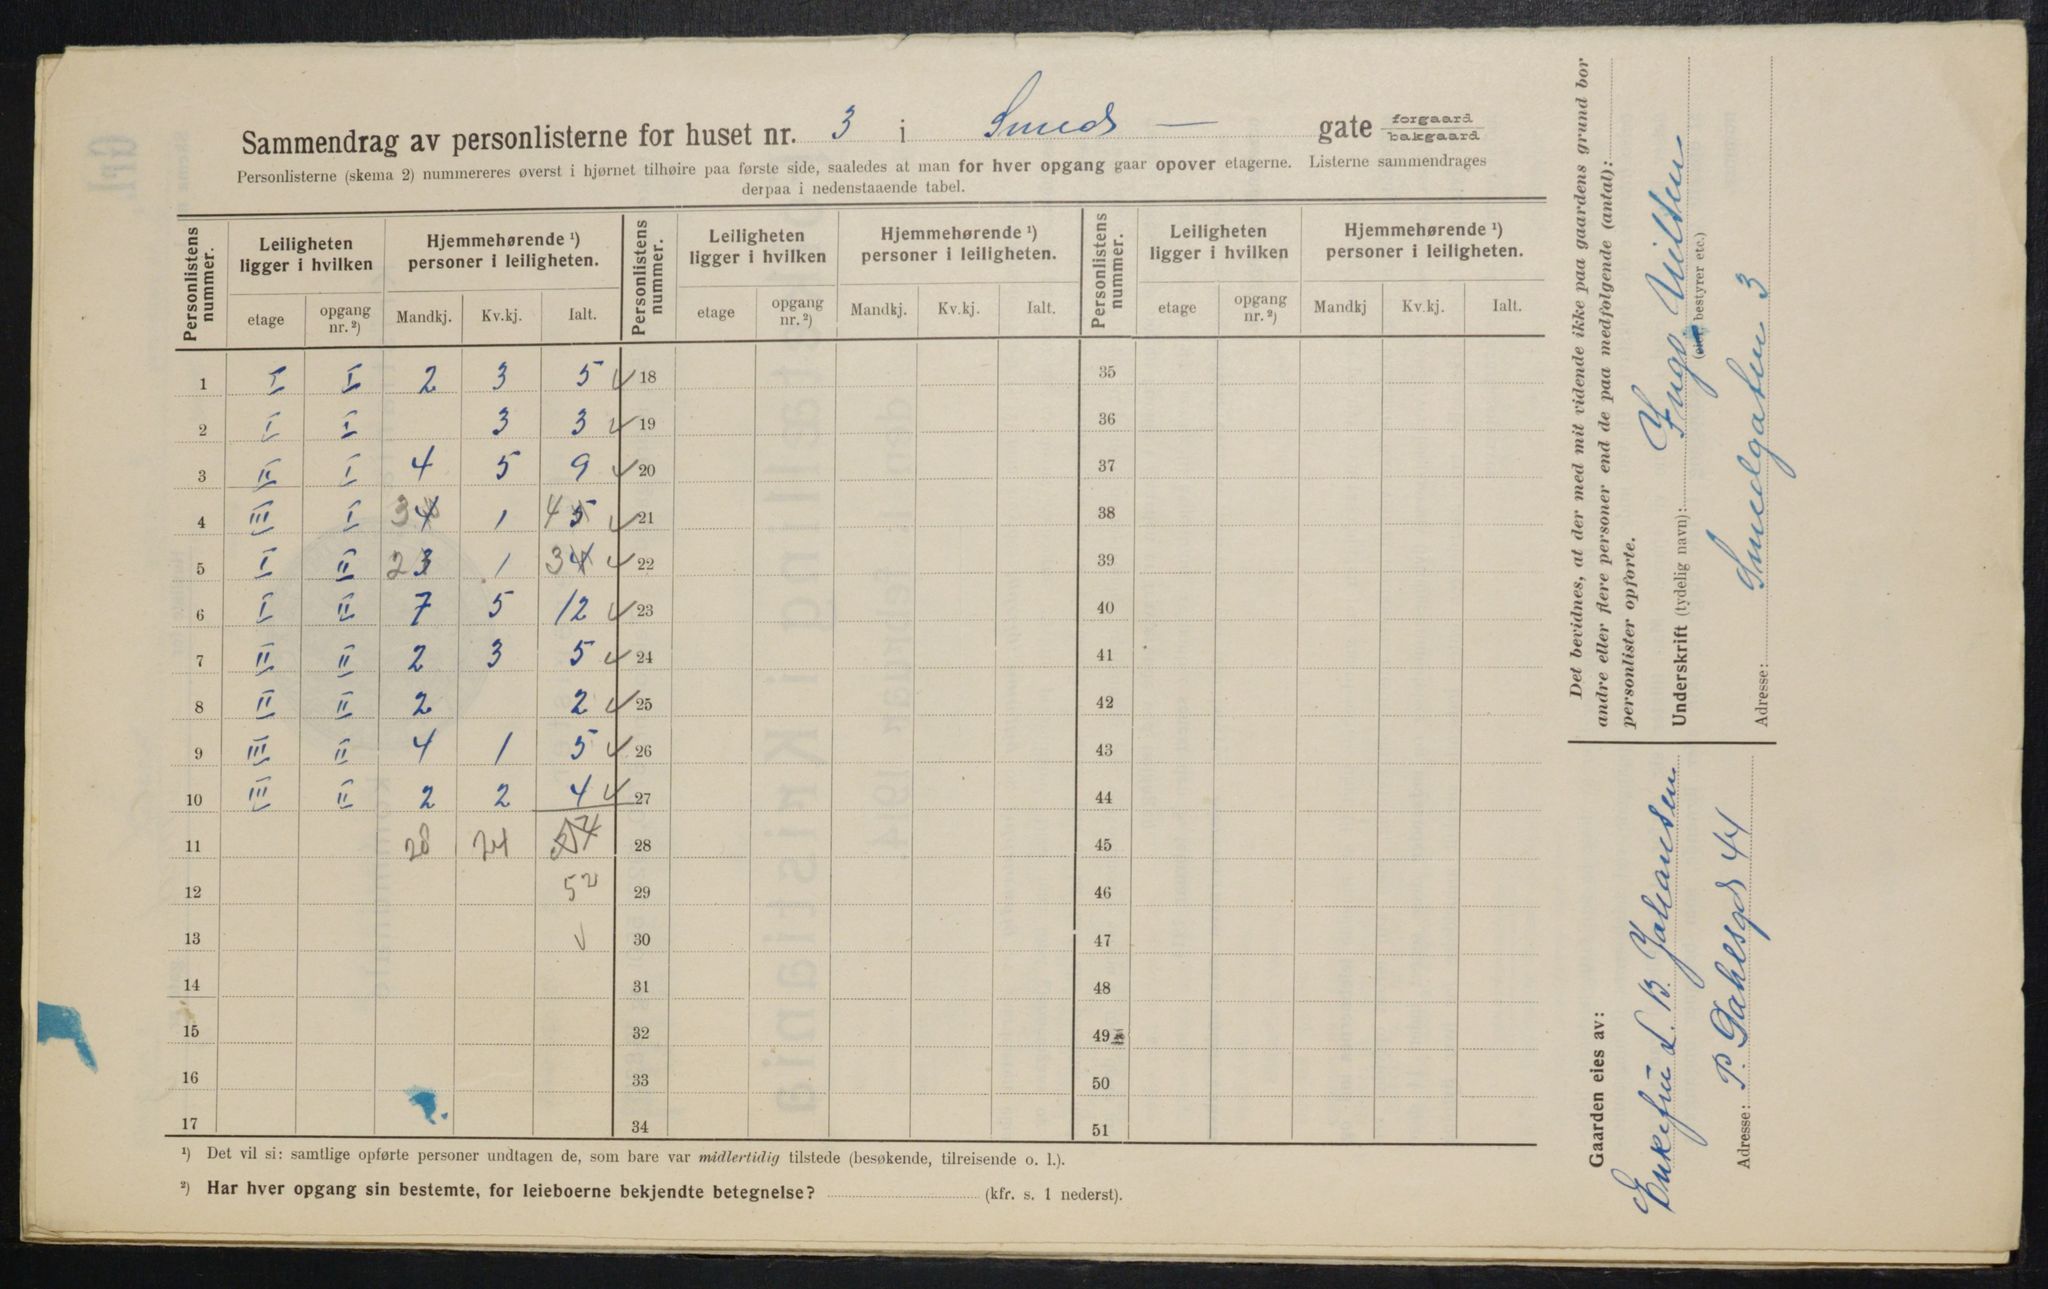 Sammendrag av personlisterne for huset nr. 3 i Smeds — gate forgaard bakgaard
Personlisterne (skema 2) nummereres øverst i hjørnet tilhøire paa første side, saaledes at man for hver opgang gaar opover etagerne. Listerne sammendrages
derpaa i nedenstaaende tabel.
Personlistens nummer. Leiligheten ligger i hvilken Hjemmehørende ¹) personer i leiligheten. Personlistens nummer. Leiligheten ligger i hvilken Hjemmehørende ¹) personer i leiligheten. Personlistens nummer. Leiligheten ligger i hvilken Hjemmehørende ¹) personer i leiligheten.
etage opgang nr. ²) Mandkj. Kv.kj. Ialt. etage opgang nr. ²) Mandkj. Kv.kj. Ialt. etage opgang nr. ²) Mandkj Kv.kj. Ialt.
1 I I 2 3 5 ✓ 18 35
2 I I 3 3 ✓ 19 36
3 II I 4 5 9 ✓ 20 37
4 III I 3 4 1 4 5 ✓ 21 38
5 I II 2 3 1 3 4 ✓ 22 39
6 I II 7 5 12 ✓ 23 40
7 II II 2 3 5 ✓ 24 41
8 II II 2 2 ✓ 25 42
9 III II 4 1 5 ✓ 26 43
10 III II 2 2 4 ✓ 27 44
11 28 24 54 28 45
12 52 29 46
13 ✓ 30 47
14 31 48
15 32 49
16 33 50
17 34 51
¹) Det vil si: samtlige opførte personer undtagen de, som bare var midlertidig tilstede (besøkende, tilreisende o. l.).
²) Har hver opgang sin bestemte, for leieboerne bekjendte betegnelse? (kfr. s. 1 nederst).
Det bevidnes, at der med mit vidende ikke paa gaardens grund bor
andre eller flere personer end de paa medfølgende (antal):
personlister opførte.
Underskrift (tydelig navn): Inga Nilsen
(eier, bestyrer etc.)
Adresse: Smedgaten 3
Gaarden eies av:
Enkefru L. B. Johansen
Adresse: P. Dahlsgd 44